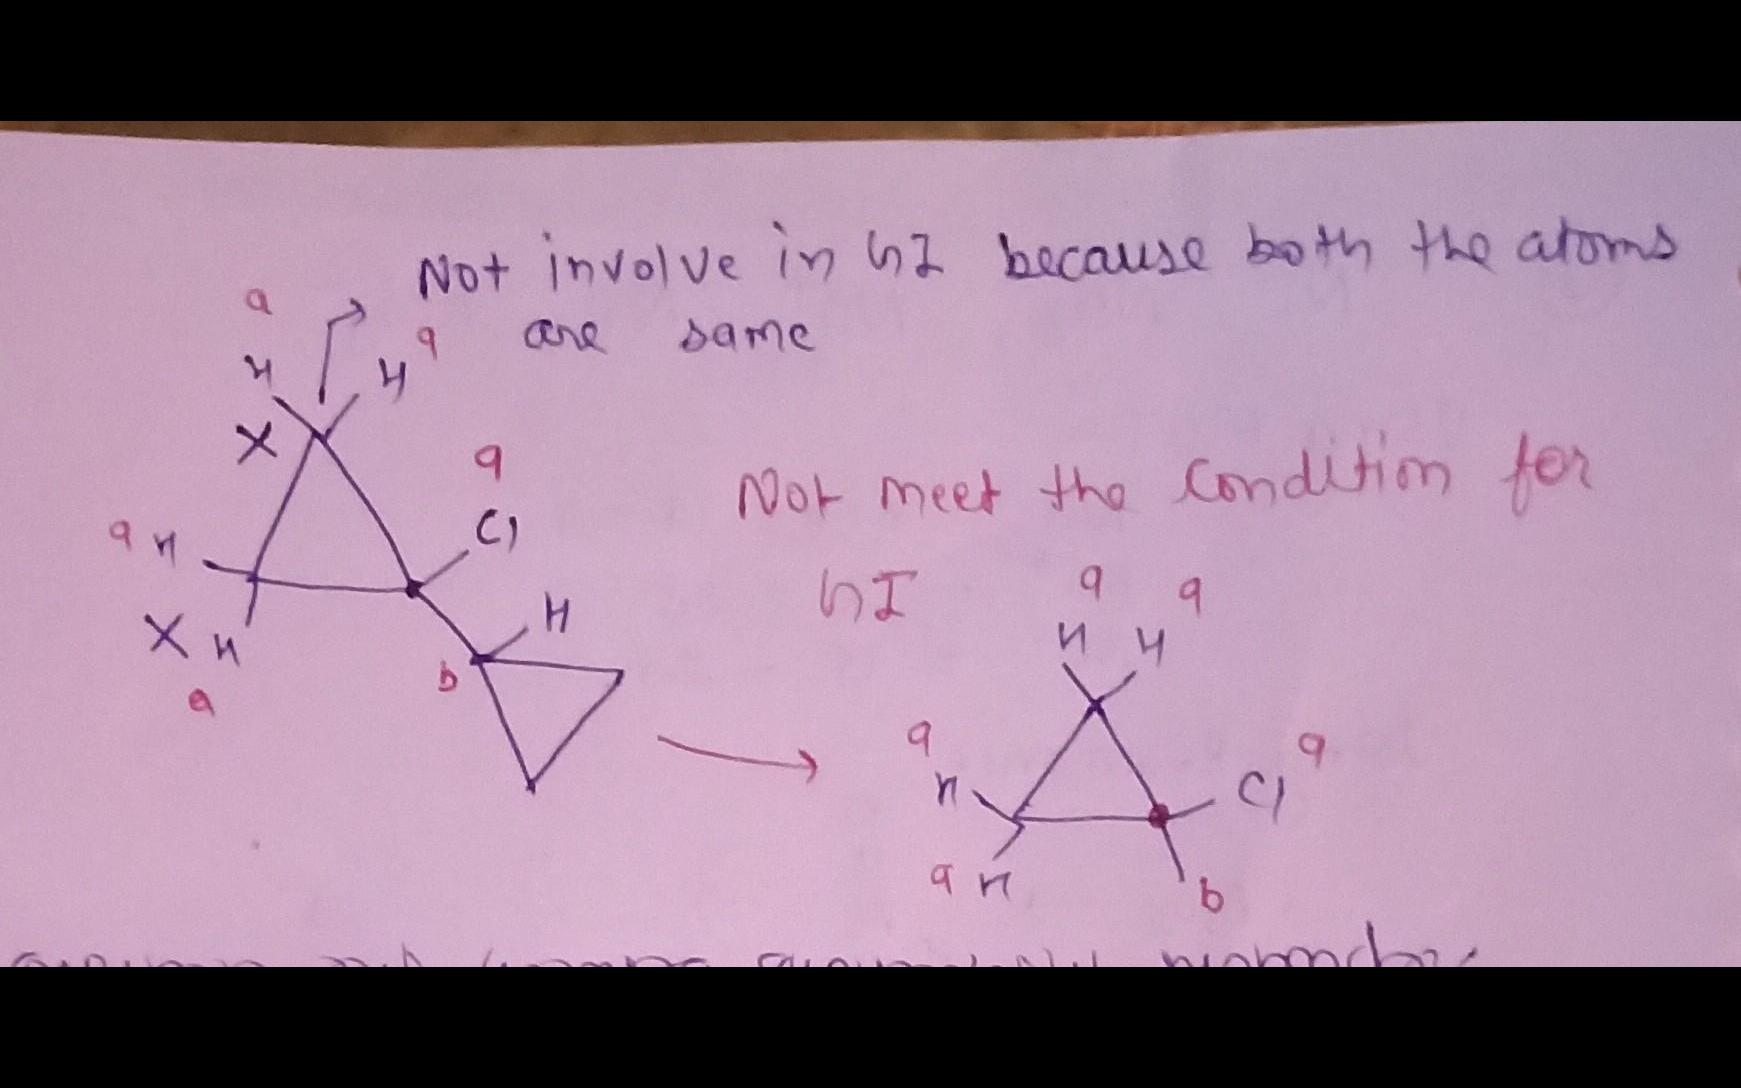 Not involve in GI because both the atoms
are same
a
a
H
H
X
a
Cl
a H
X H
a
H
b
Not meet the condition for
GI
a
a
H
H
a
H
a
Cl
a H
b